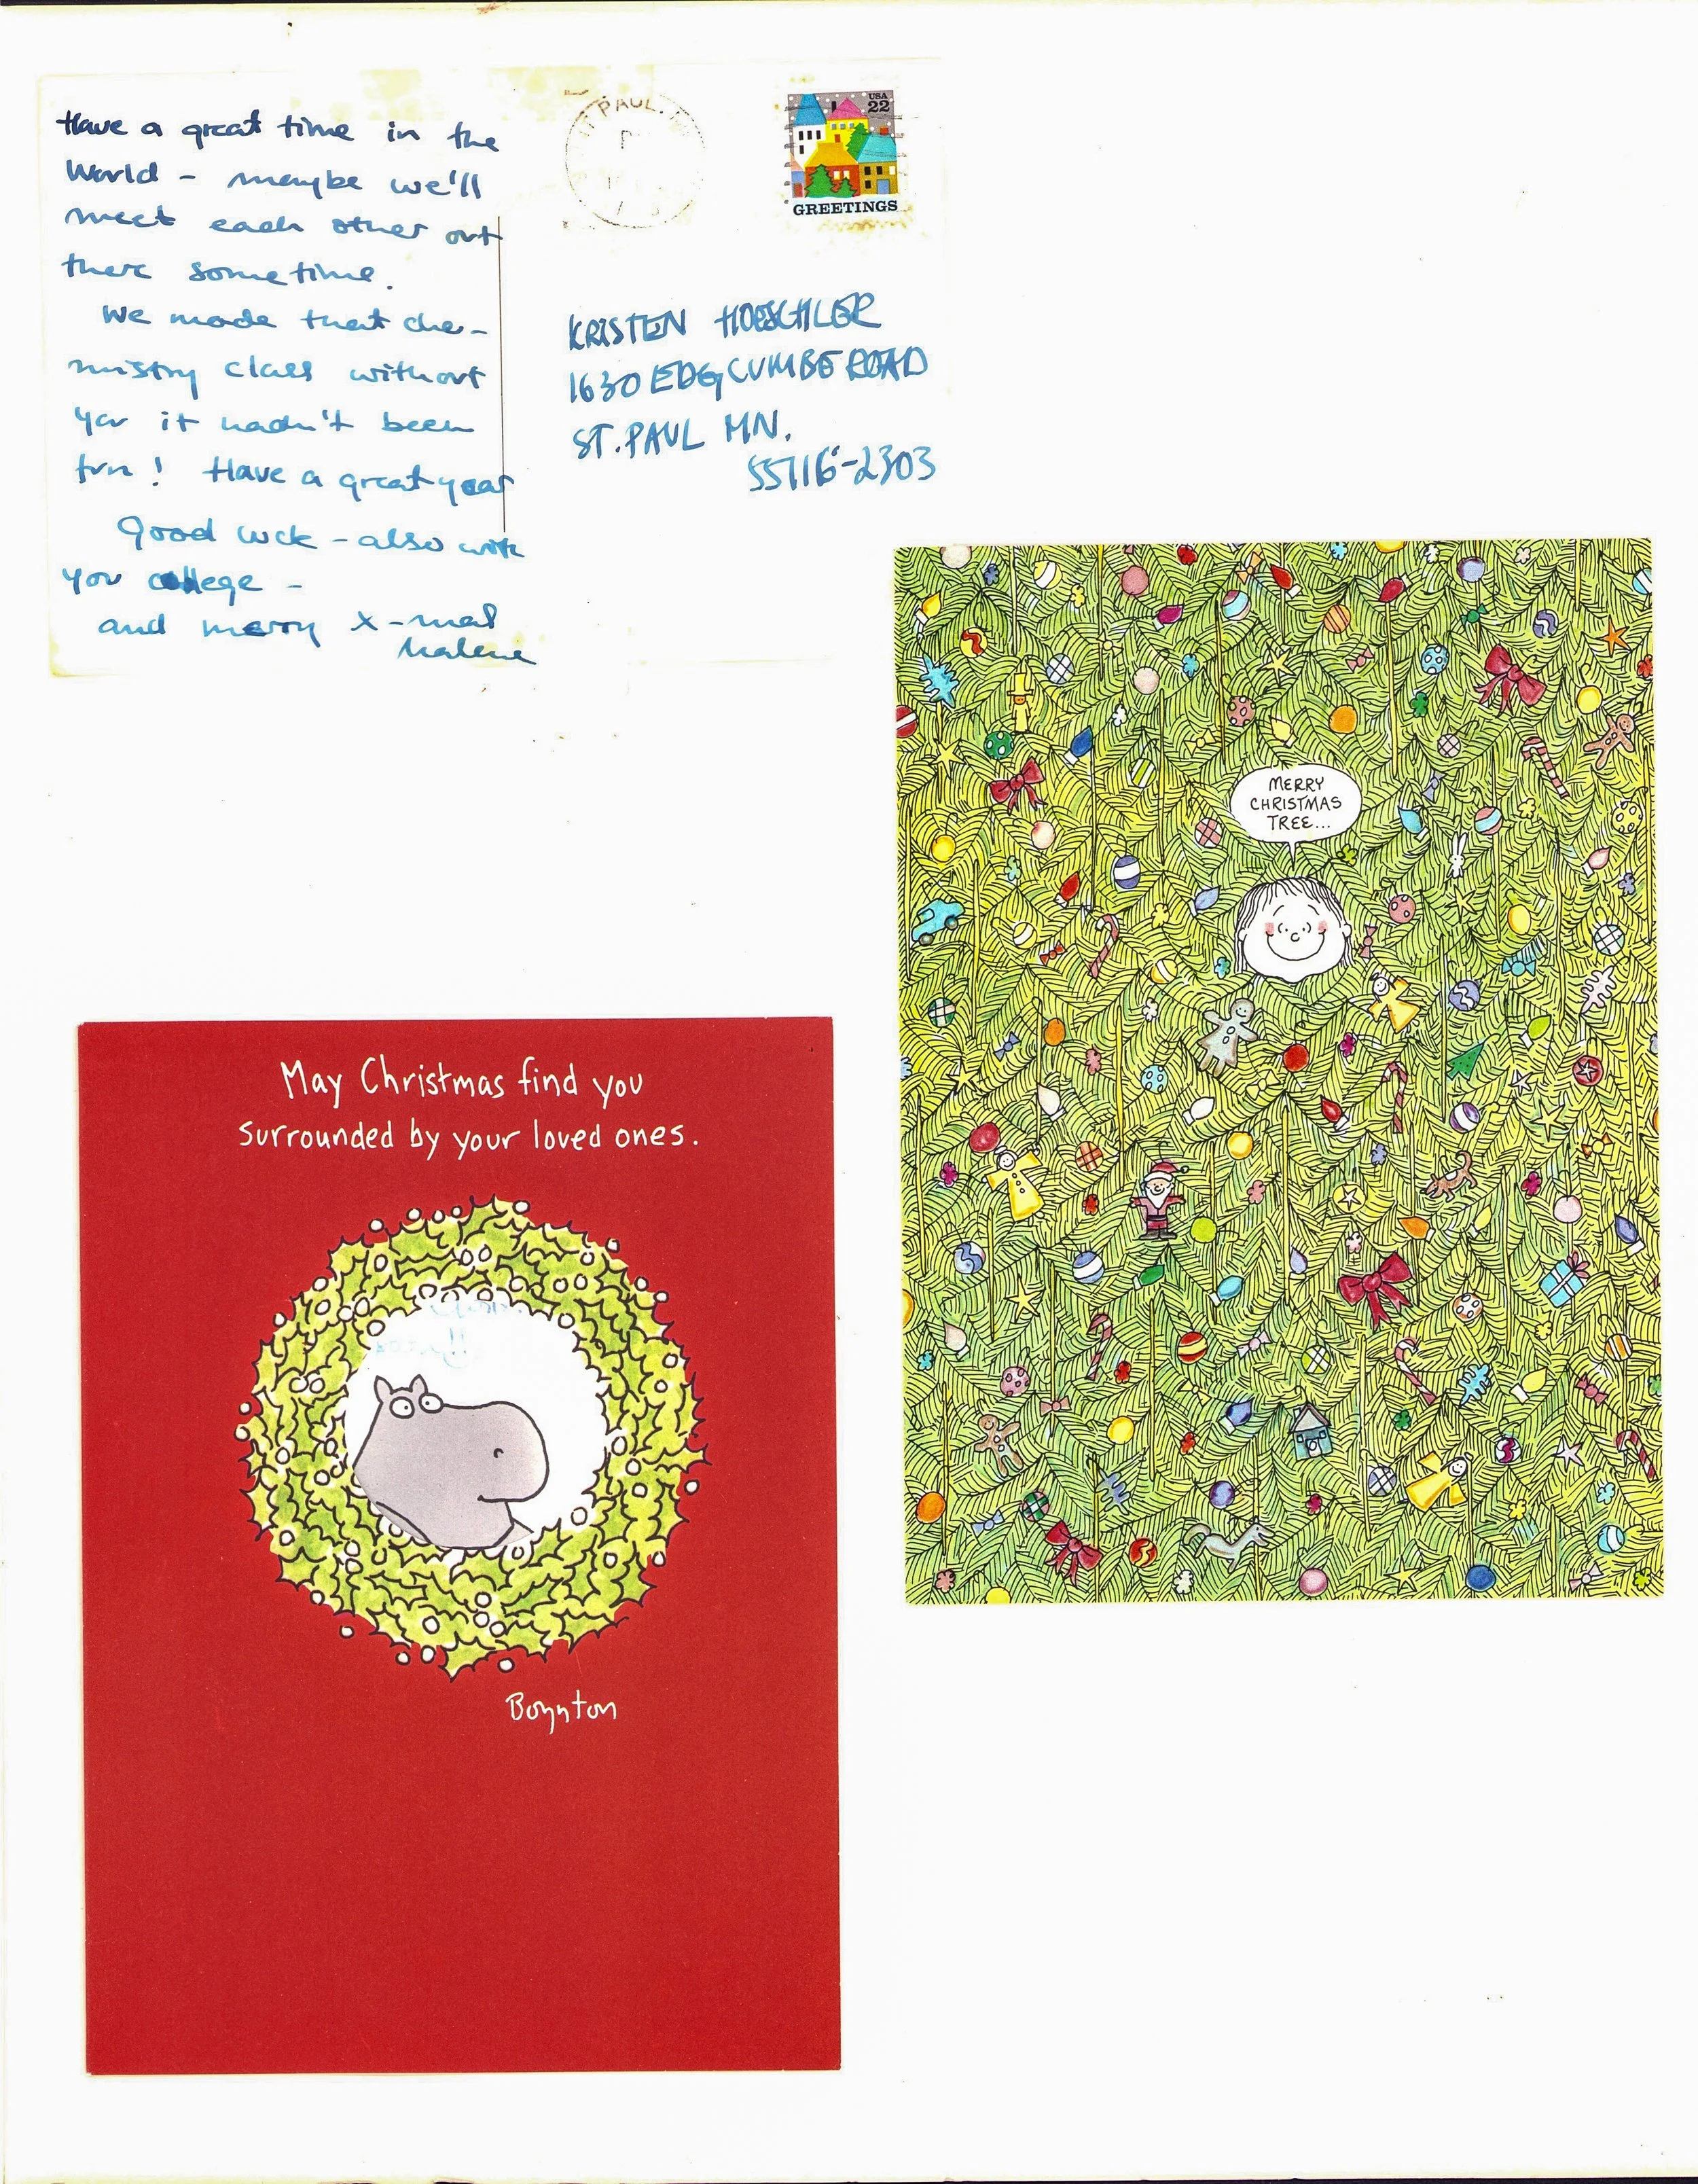 Have a great time in the
World - maybe we'll
meet each other out
there sometime.
We made that che-
mistry class without
you it hadn't been
fun! Have a great year
Good luck - also with
you college -
and merry x-mas
Malene
PAUL.
USA
22
GREETINGS
KRISTEN HOESCHLER
1630 EDGCUMBE ROAD
ST. PAUL MN.
55116-2303
MERRY
CHRISTMAS
TREE...
May Christmas find you
surrounded by your loved ones.
Boynton